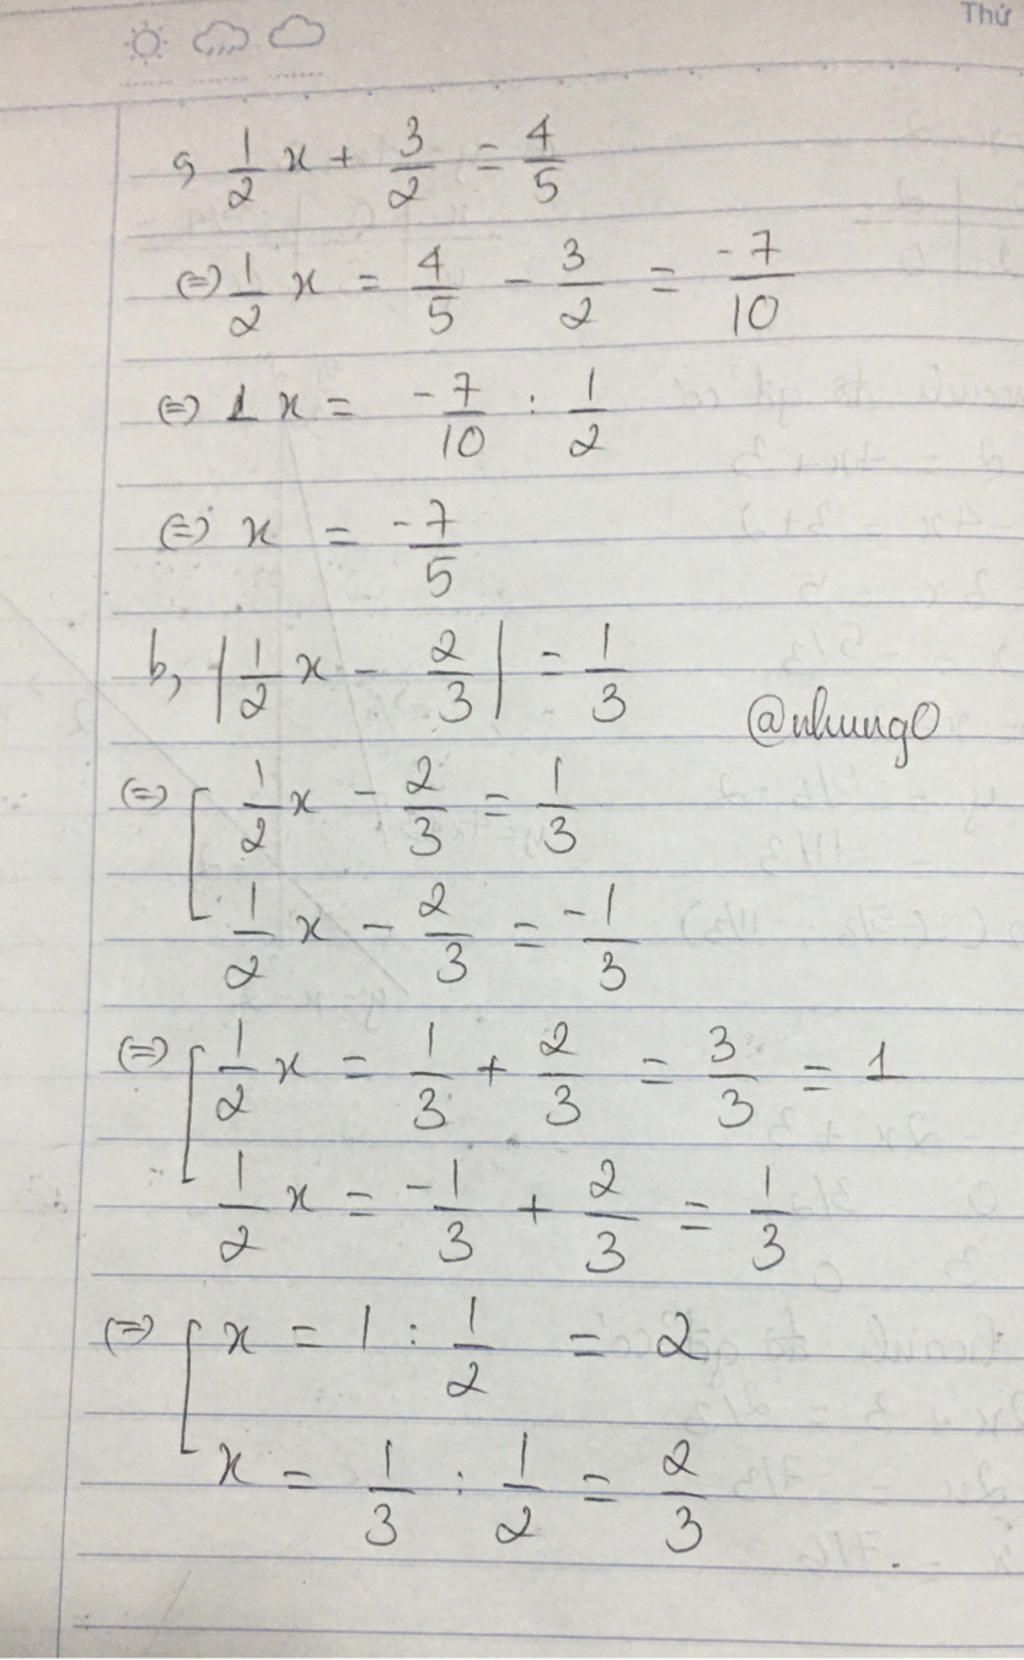 Thứ
a, 1/2 x + 3/2 = 4/5
(=) 1/2 x = 4/5 - 3/2 = -7/10
(=) 1 x = -7/10 : 1/2
(=) x = -7/5
b, |1/2 x - 2/3| = 1/3
@nhung0
(=) [ 1/2 x - 2/3 = 1/3
1/2 x - 2/3 = -1/3
(=) [ 1/2 x = 1/3 + 2/3 = 3/3 = 1
1/2 x = -1/3 + 2/3 = 1/3
(=) [ x = 1 : 1/2 = 2
x = 1/3 : 1/2 = 2/3